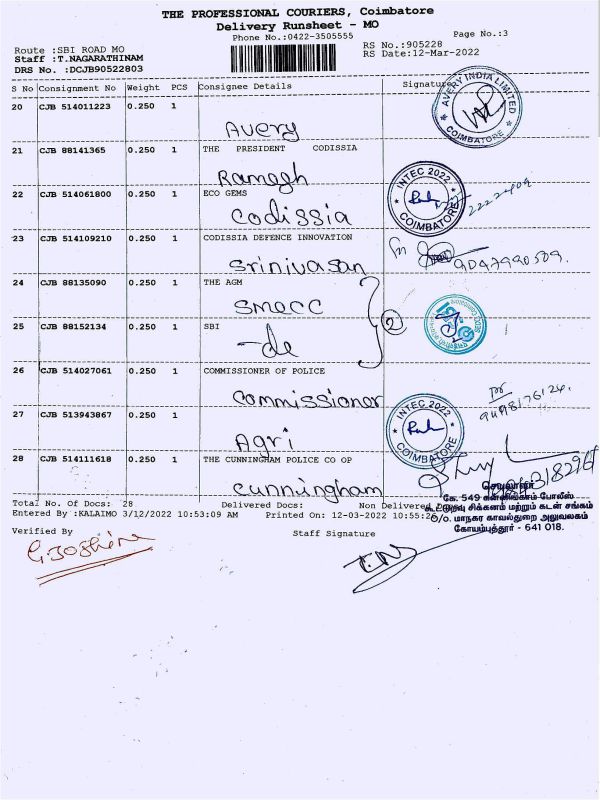 THE PROFESSIONAL COURIERS, Coimbatore
Delivery Runsheet - MO
Phone No.:0422-3505555
Page No.:3
Route :SBI ROAD MO
RS No.:905228
Staff :T.NAGARATHINAM
RS Date:12-Mar-2022
DRS No. :DCJB90522803
S No Consignment No Weight PCS Consignee Details Signature
20 CJB 514011223 0.250 1
Avery
AVERY INDIA LIMITED
COIMBATORE
21 CJB 88141365 0.250 1 THE PRESIDENT CODISSIA
Ramegh
22 CJB 514061800 0.250 1 ECO GEMS
Codissia
INTEC 2022
COIMBATORE
23 CJB 514109210 0.250 1 CODISSIA DEFENCE INNOVATION
Srinivasan
9047990509.
24 CJB 88135090 0.250 1 THE AGM
SMECC
2
25 CJB 88152134 0.250 1 SBI
-do
26 CJB 514027061 0.250 1 COMMISSIONER OF POLICE
Commissioner
9498176124.
27 CJB 513943867 0.250 1
Agri
INTEC 2022
COIMBATORE
28 CJB 514111618 0.250 1 THE CUNNINGHAM POLICE CO OP
Cunningham
Total No. Of Docs: 28 Delivered Docs: Non Delivered Docs:
Entered By :KALAIMO 3/12/2022 10:53:09 AM Printed On: 12-03-2022 10:55:26
Verified By
Staff Signature
செயலாளர்
கே. 549 கன்னிங்காம் போலீஸ்
கூட்டுறவு சிக்கனம் மற்றும் கடன் சங்கம்
O/o. மாநகர காவல்துறை அலுவலகம்
கோயம்புத்தூர் - 641 018.